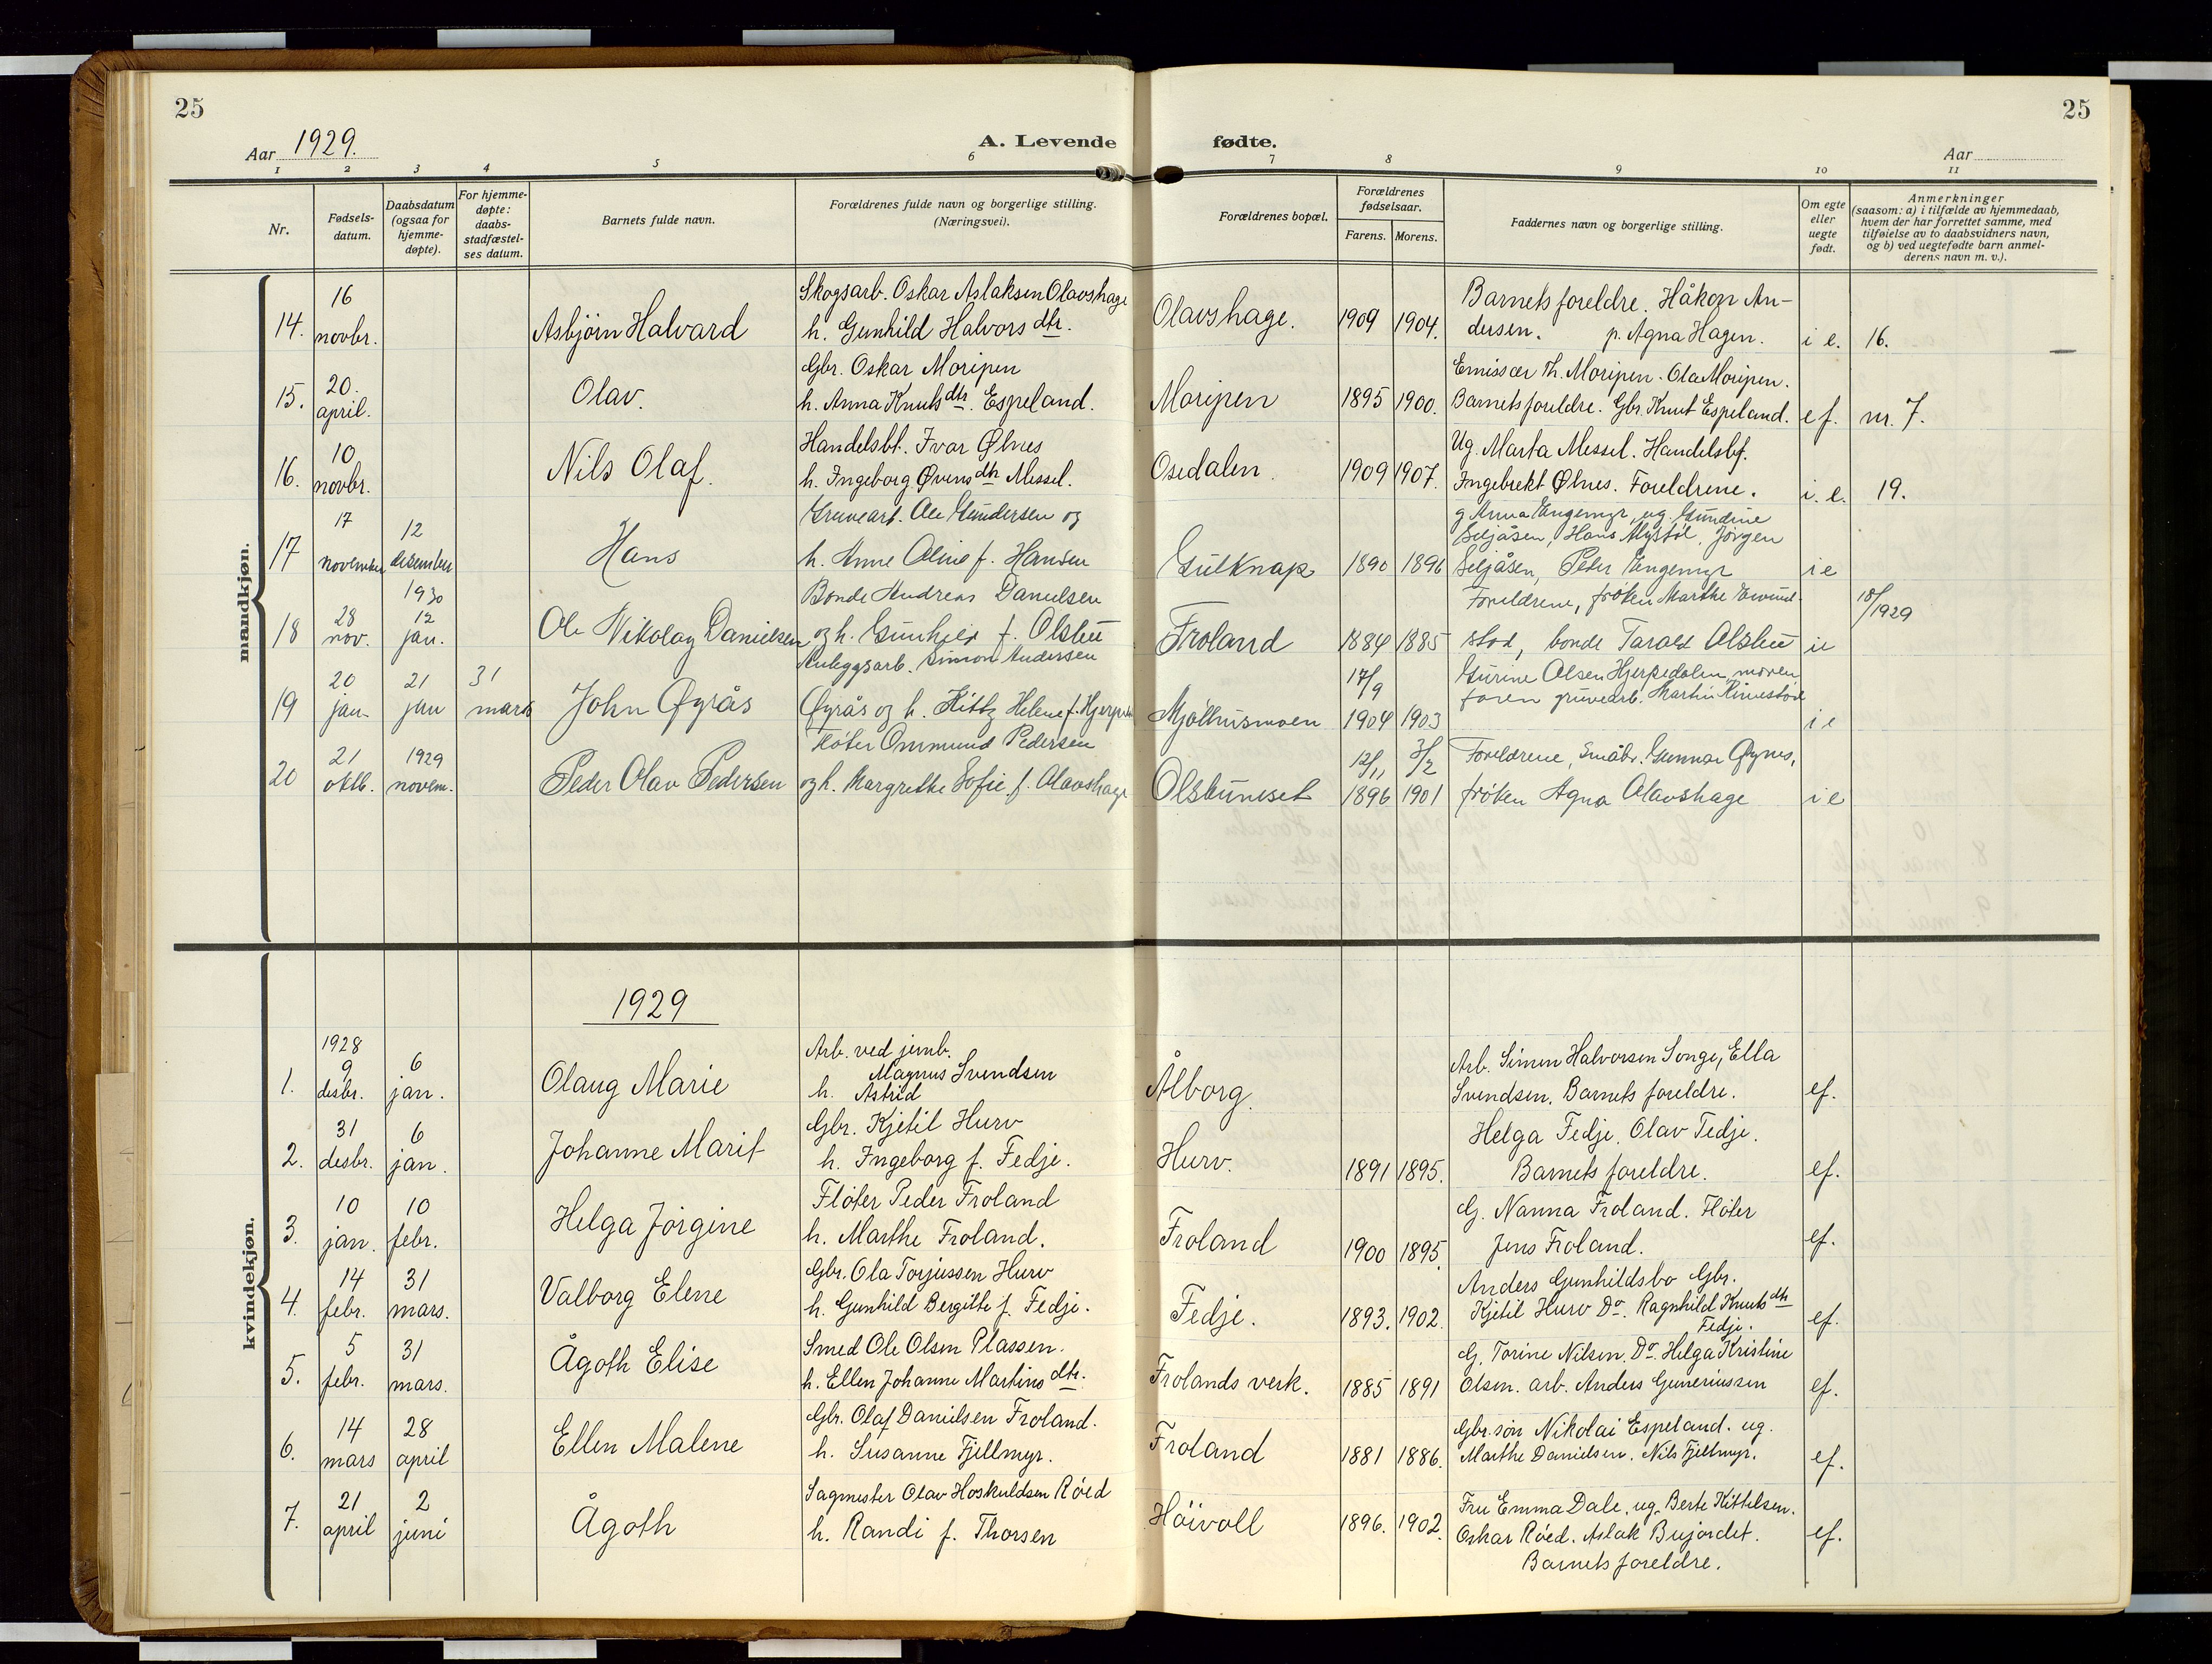 25
25
Aar 1929.
A. Levende fødte.
Aar
1 2 3 4 5 6 7 8 9 10 11
Nr.
Fødsels-
datum.
Daabsdatum
(ogsaa for
hjemme-
døpte).
For hjemme-
døpte:
daabs-
stadfæstel-
ses datum.
Barnets fulde navn.
Forældrenes fulde navn og borgerlige stilling.
(Næringsvei).
Forældrenes bopæl.
Forældrenes
fødselsaar.
Farens. Morens.
Faddernes navn og borgerlige stilling.
Om egte
eller
uegte
født.
Anmerkninger
(saasom: a) i tilfælde av hjemmedaab,
hvem der har forrettet samme, med
tilføielse av to daabsvidners navn,
og b) ved uegtefødte barn anmel-
derens navn m. v.).
mandkjøn.
14. 16 novbr. Asbjørn Halvard
Skogsarb. Oskar Aslaksen Olavshage
h. Gunhild Halvorsdtr.
Olavshage. 1909 1904.
Barnets foreldre. Håkon An-
dersen. p. Agna Hagen. i e. 16.
15. 20. april. Olav.
Gbr. Oskar Moripen
h. Anna Knutsdtr. Espeland.
Moripen 1895 1900.
Emissær Th. Moripen. Ola Moripen.
Barnets foreldre. Gbr. Knut Espeland. ef. nr. 7.
16. 10 novbr. Nils Olaf.
Handelsbt. Ivar Ølnes
h. Ingeborg Øvensdtr Messel.
Osedalen. 1909 1907.
Ug. Marta Messel. Handelsbf.
Ingebrekt Ølnes. Foreldrene. i. e. 19.
17 17 november 12 desember Hans
Gruvearb. Ole Gundersen og
h. Anne Oline f. Hansen
Gullknap 1890 1896
g Anna Engemyr, ug. Gundine
Seljåsen, Hans Mystøl, Jörgen
Seljåsen, Peder Engemyr i e
18 28 nov. 1930 12 jan. Ole Nikolay Danielsen
Bonde Andreas Danielsen
og h. Gunhild f. Olsbu
Froland 1884 1885
Foreldrene, frøken Marthe Eivind-
stad, bonde Tarald Olsbu ie
18/ 1929
19 20 jan. 21 jan 31 mars John Øyrås
Anleggsarb. Simon Andersen
Øyrås og h. Kitty Helene f. Hjerpe
Mjølhusmoen 17/9 1904 1903
Gurine Olsen Hjerpedalen, moren,
faren gruvearb. Martin Rinnestad i e
20 21 oktb. 1929 novem. Peder Olav Pedersen
Fløter Ommund Pedersen
og h. Margrethe Sofie f. Olavshage
Olsbuneset 12/11 1896 3/2 1901
Foreldrene, Småbr. Gunnar Øynes,
frøken Agna Olavshage i e
kvindekjøn.
1929
1. 1928 9 desbr. 6 jan. Olaug Marie
Arb. ved jernb.
Magnus Svendsen
h. Astrid
Ålborg.
Arb. Simon Halvorsen Songe, Ella
Svendsen. Barnets foreldre. ef.
2. 31 desbr. 6 jan. Johanne Marit
Gbr. Kjetil Hurv
h. Ingeborg f. Fedje.
Hurv. 1891 1895.
Helga Fedje. Olav Fedje.
Barnets foreldre. ef.
3. 10 jan. 10 febr. Helga Jörgine
Fløter Peder Froland
h. Marthe Froland.
Froland 1900 1895.
G. Nanna Froland. Fløter
Jens Froland. ef.
4. 14 febr. 31 mars. Valborg Elene
Gbr. Ola Torjussen Hurv
h. Gunhild Bergitte f. Fedje.
Fedje. 1893. 1902.
Anders Gunhildsbo Gbr.
Kjetil Hurv Do. Ragnhild Knutsdtr
Fedje. ef.
5. 5 febr. 31 mars. Ågoth Elise
Smed Ole Olsen Plassen.
h. Ellen Johanne Martinsdtr.
Frolands verk. 1885 1891
G. Torine Nilsen. Do. Helga Kristine
Olsen. arb. Anders Gunerinssen ef.
6. 14 mars 28 april Ellen Malene
Gbr. Olaf Danielsen Froland.
h. Susanne Fjellmyr.
Froland 1881 1886.
Gbr. søn Nikolai Espeland. ug.
Marthe Danielsen. Nils Fjellmyr. ef.
7. 21 april 2 juni Ågoth
Sagmester Olav Hoskuldsen Røed
h. Randi f. Thorsen
Höivoll 1896. 1902.
Fru Emma Dale. ug. Berte Kittelsen.
Oskar Røed. Aslak Bujordet.
Barnets foreldre. ef.